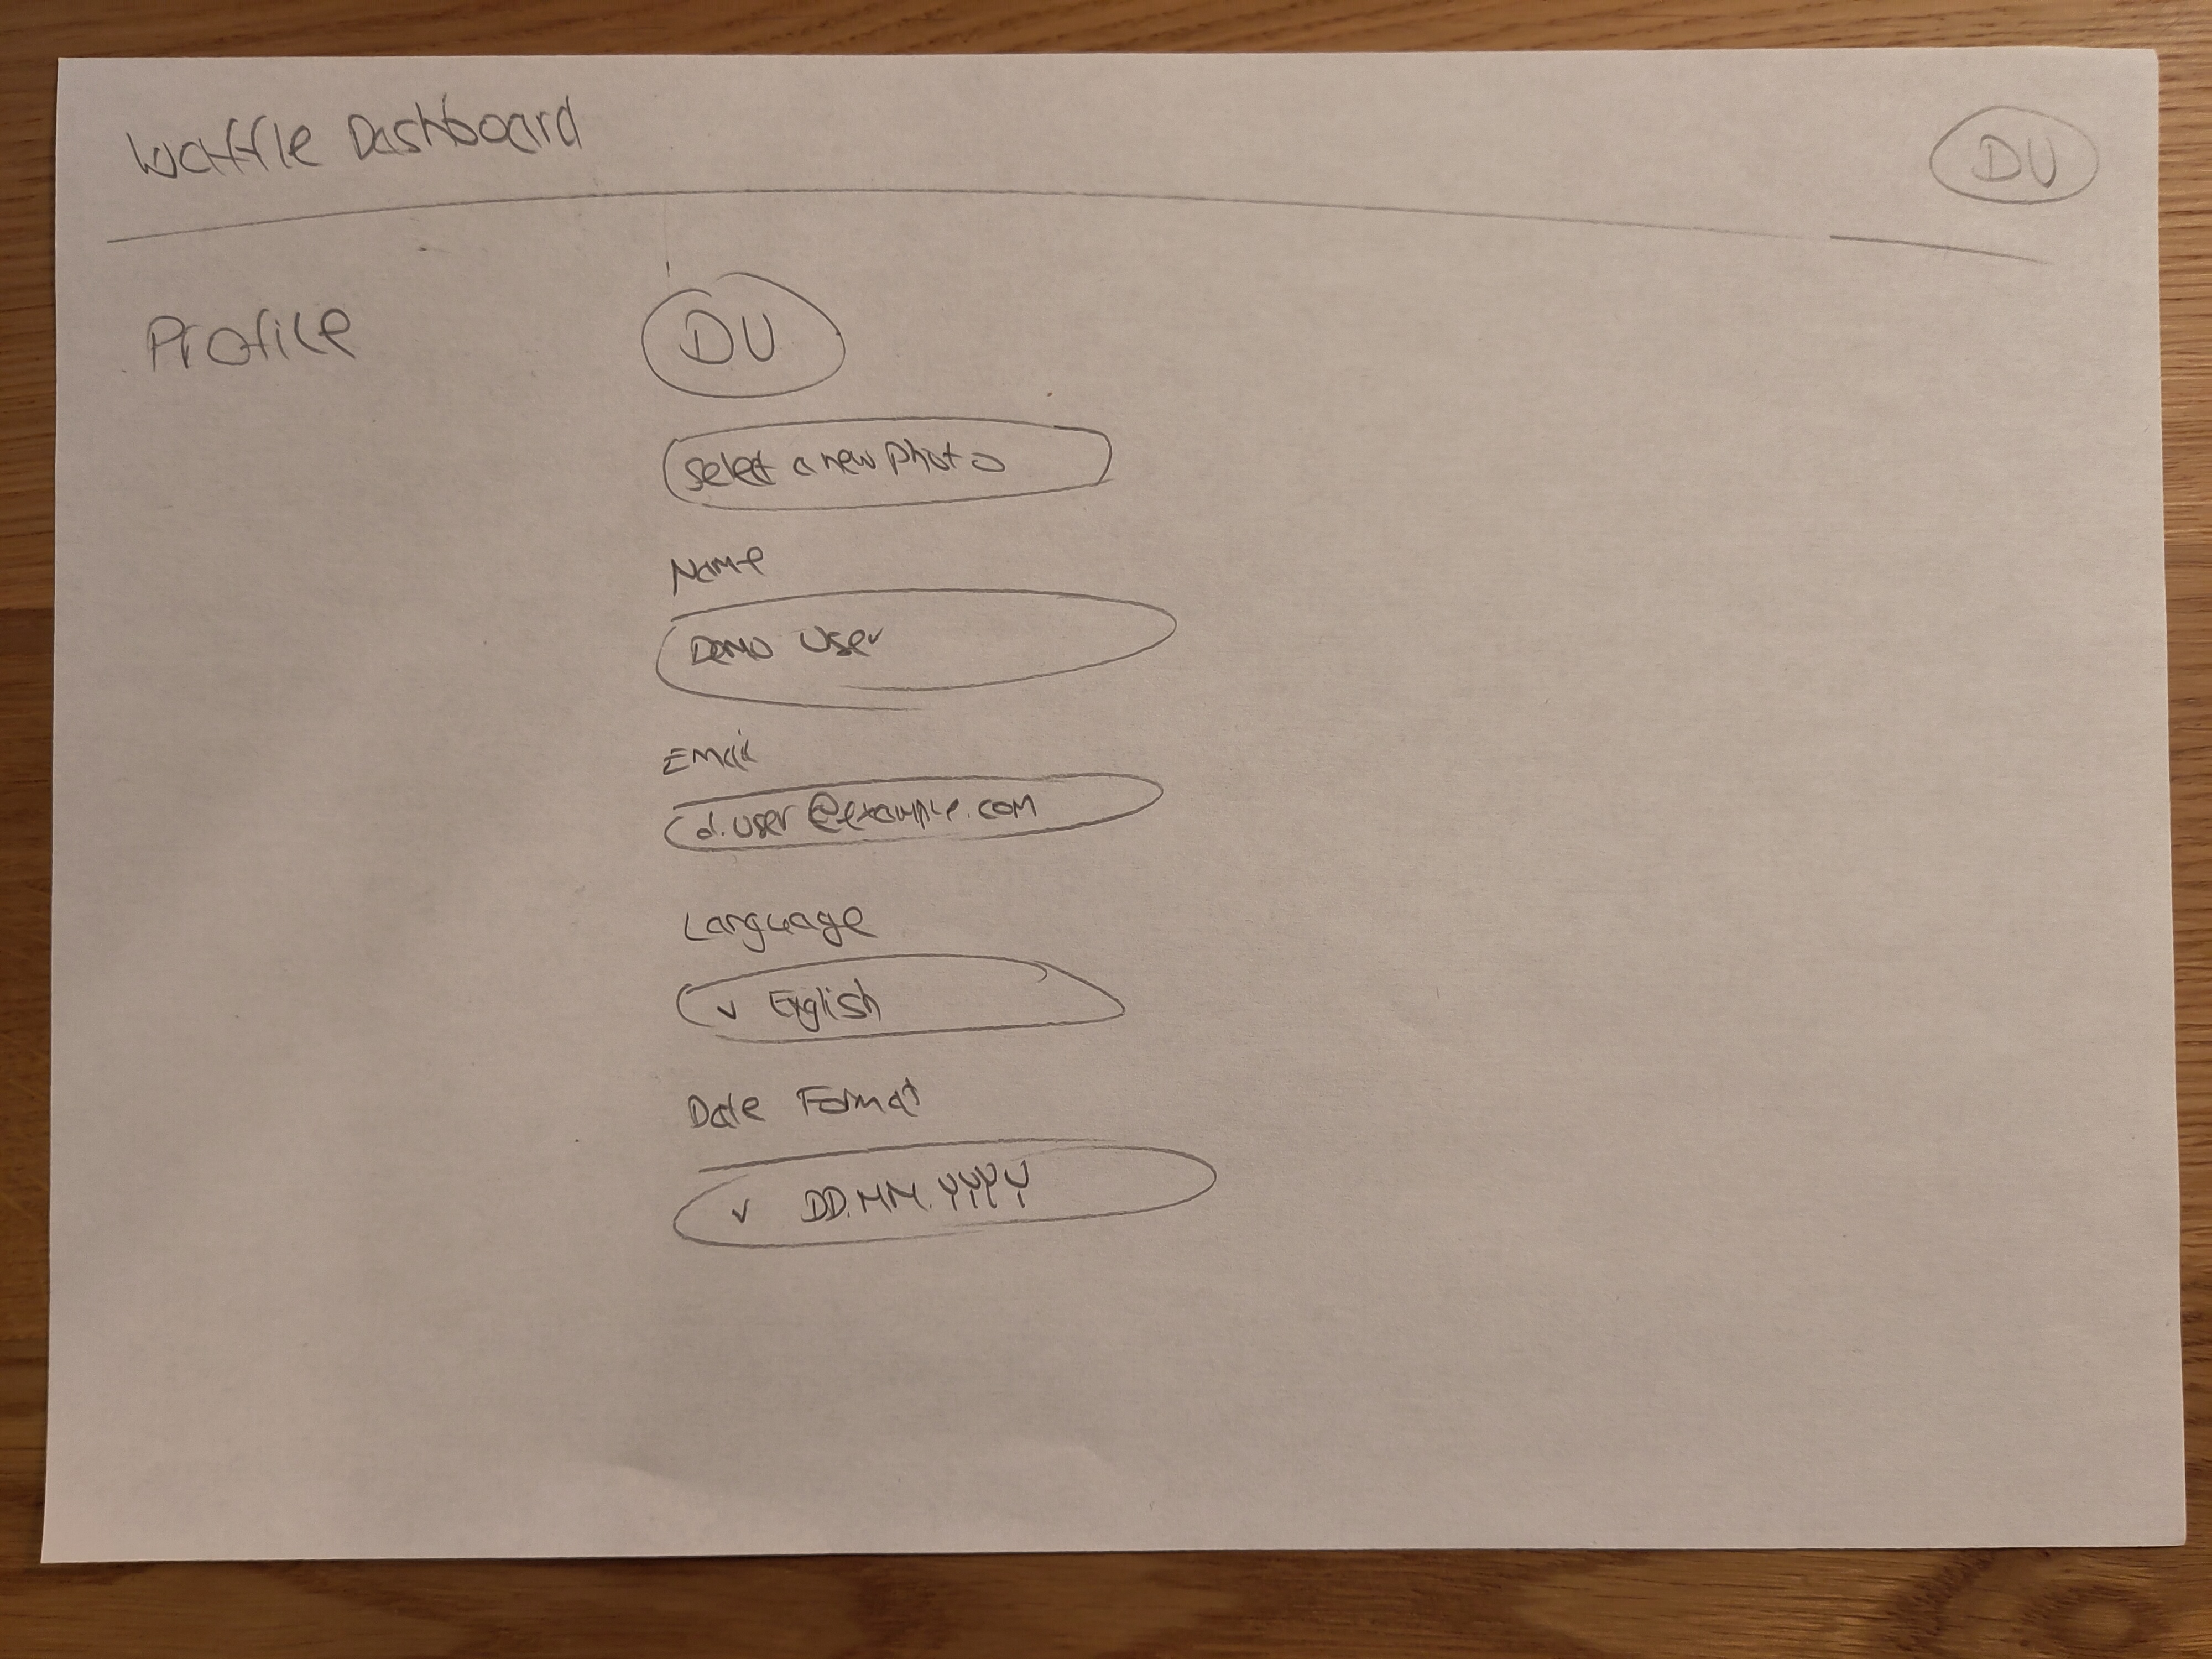 Waffle Dashboard
DU
Profile
DU
Select a new Photo
Name
Demo User
Email
d.user@example.com
Language
v English
Date Format
v DD.MM.YYYY